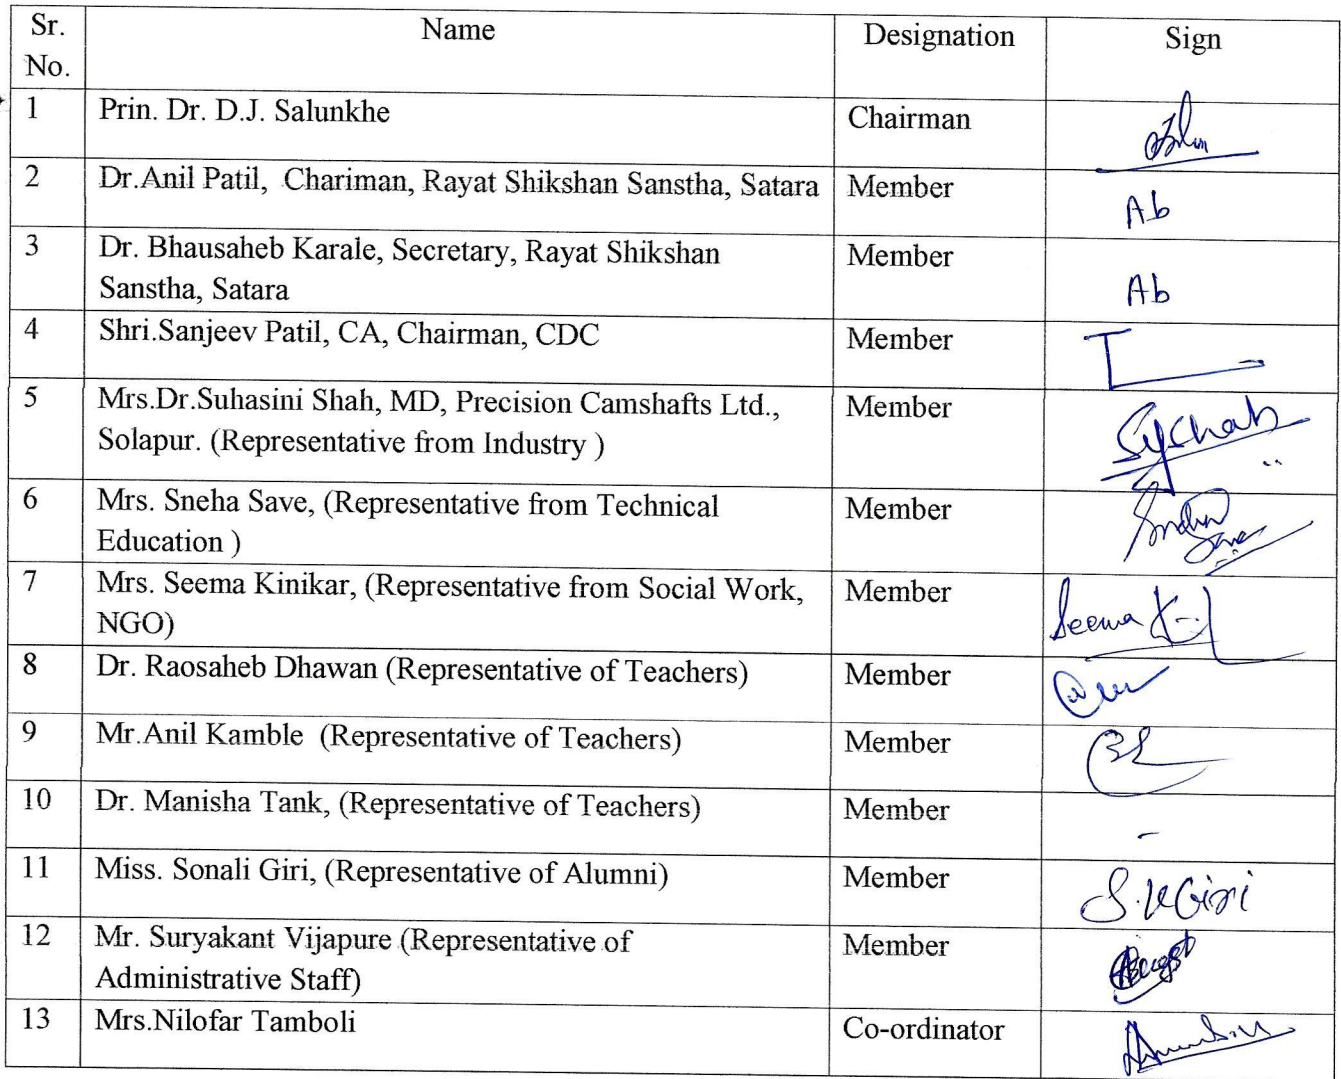 Sr. No. Name Designation Sign
1 Prin. Dr. D.J. Salunkhe Chairman
2 Dr.Anil Patil, Chariman, Rayat Shikshan Sanstha, Satara Member Ab
3 Dr. Bhausaheb Karale, Secretary, Rayat Shikshan Member
Sanstha, Satara Ab
4 Shri.Sanjeev Patil, CA, Chairman, CDC Member
5 Mrs.Dr.Suhasini Shah, MD, Precision Camshafts Ltd., Member
Solapur. (Representative from Industry )
6 Mrs. Sneha Save, (Representative from Technical Member
Education )
7 Mrs. Seema Kinikar, (Representative from Social Work, Member
NGO) Seema K
8 Dr. Raosaheb Dhawan (Representative of Teachers) Member
9 Mr.Anil Kamble (Representative of Teachers) Member
10 Dr. Manisha Tank, (Representative of Teachers) Member -
11 Miss. Sonali Giri, (Representative of Alumni) Member
12 Mr. Suryakant Vijapure (Representative of Member
Administrative Staff)
13 Mrs.Nilofar Tamboli Co-ordinator